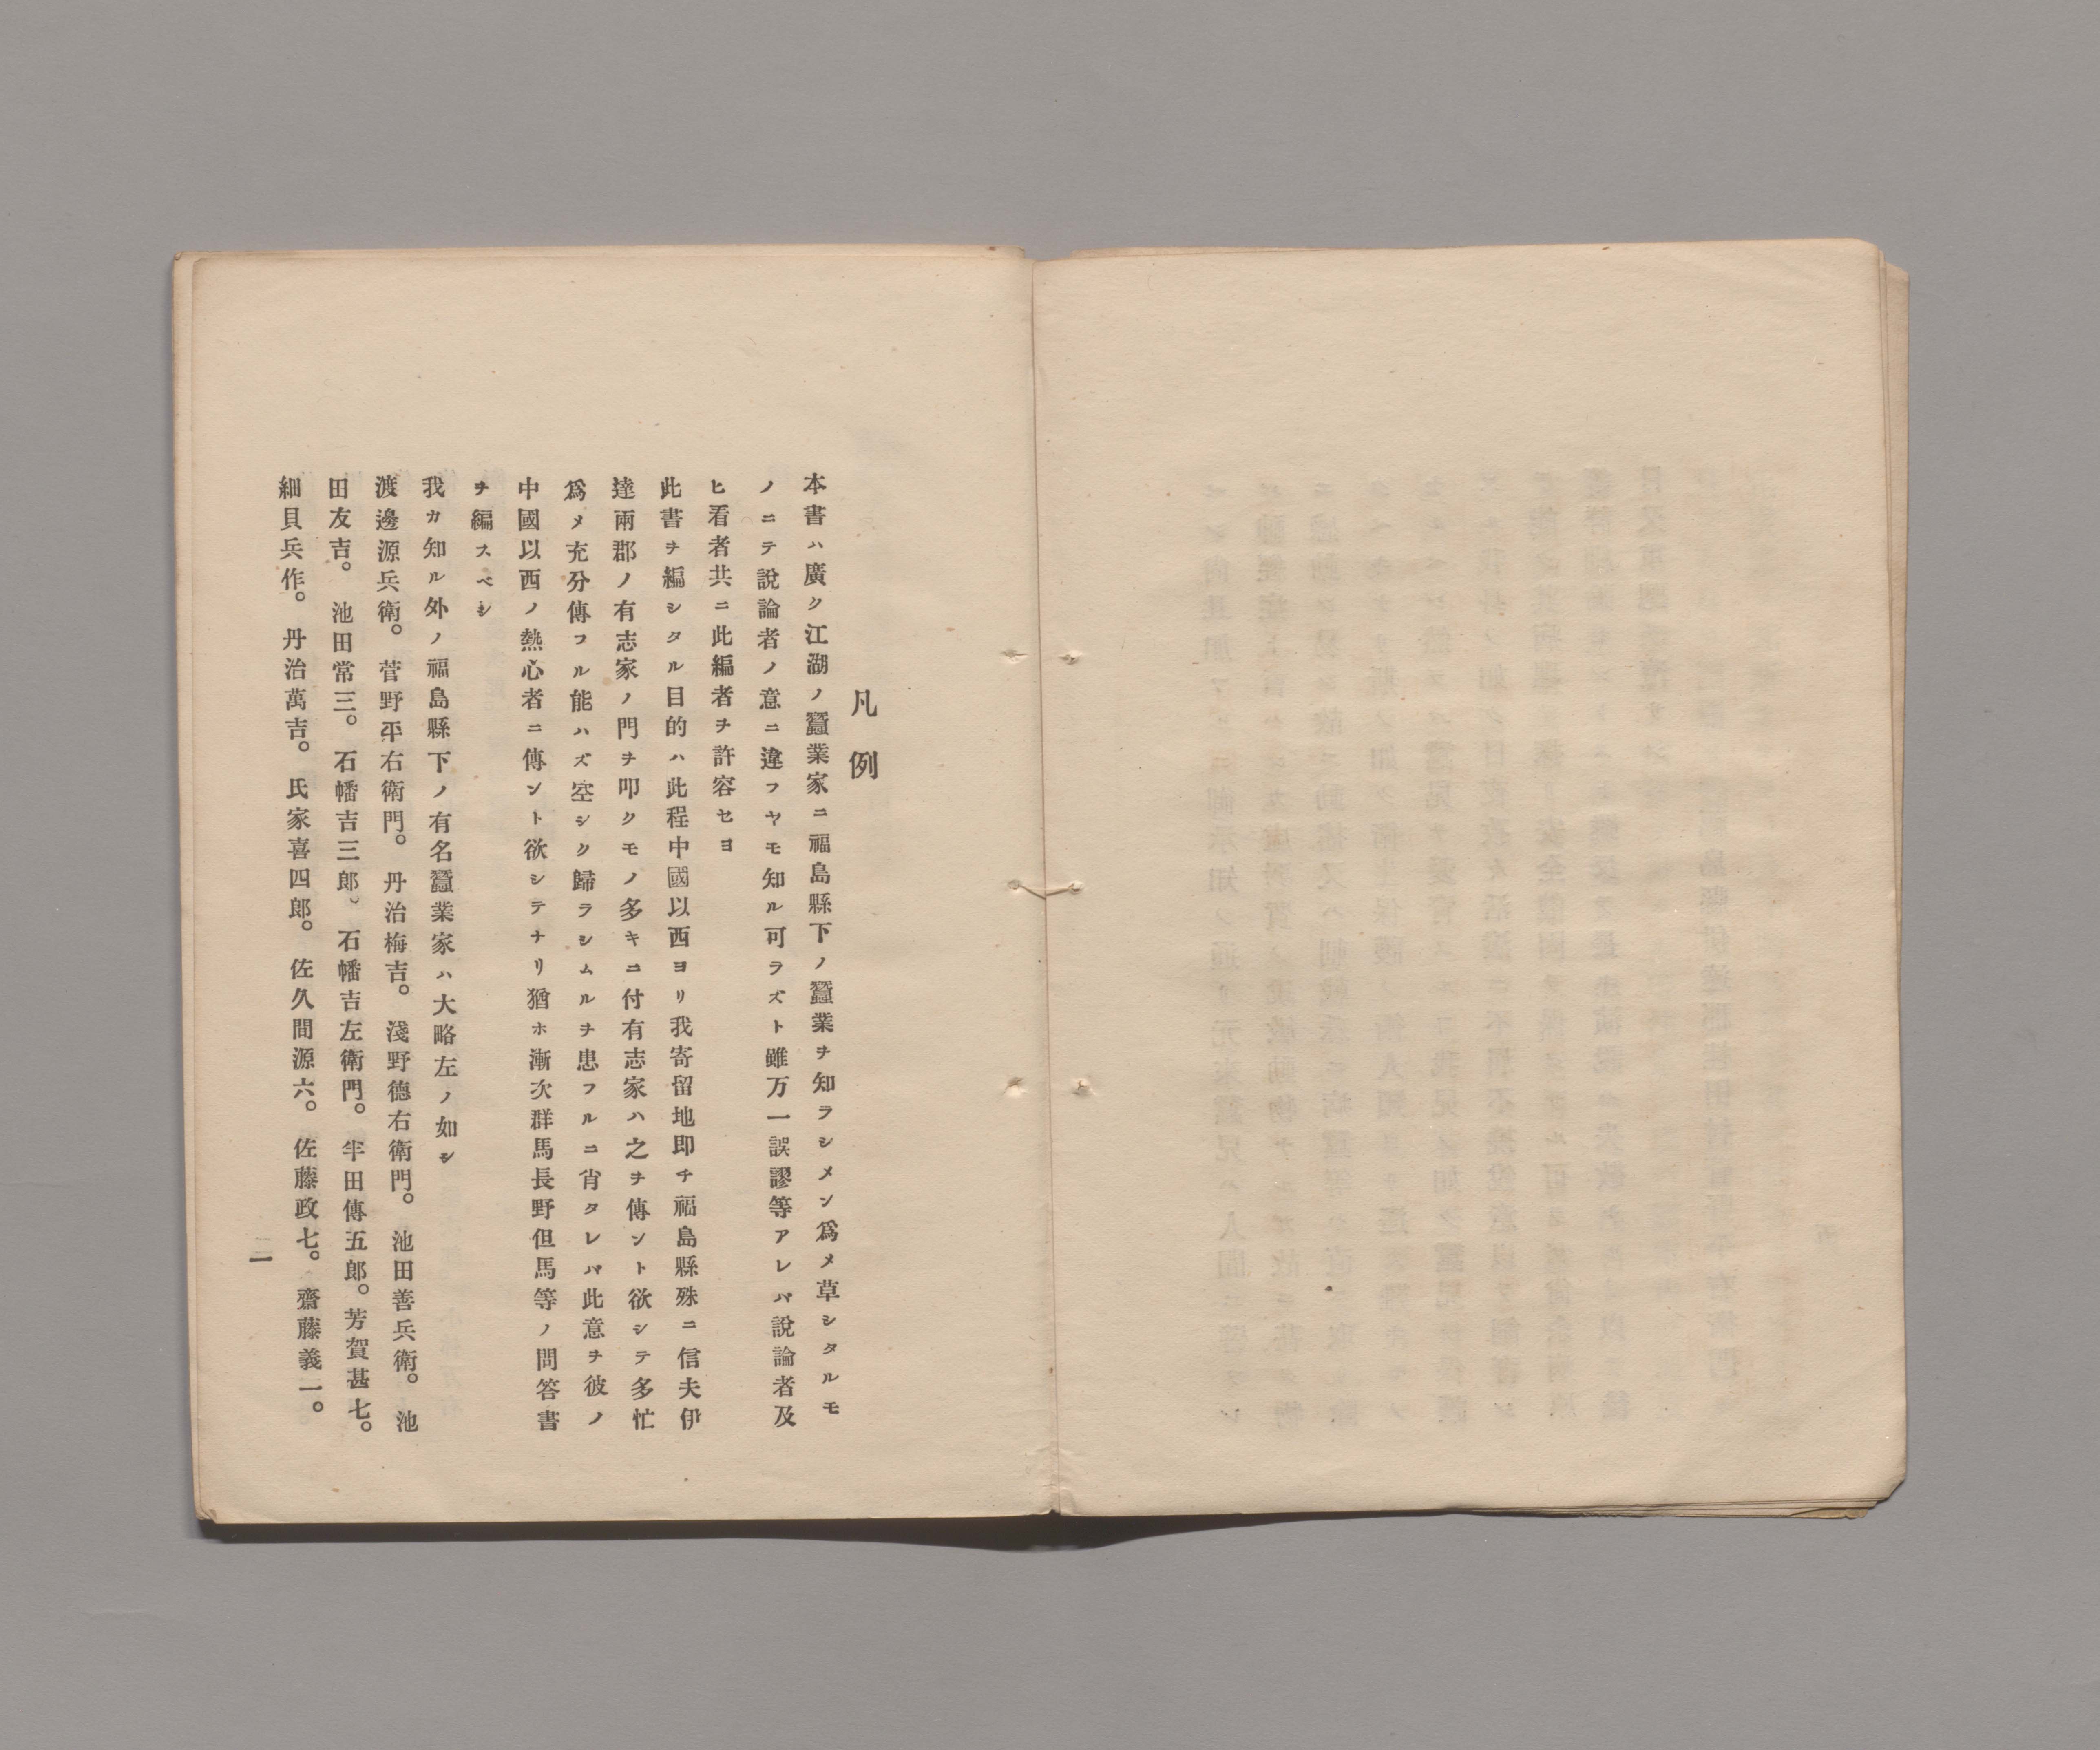 凡例
本書ハ廣ク江湖ノ蠶業家ニ福島縣下ノ蠶業ヲ知ラシメン爲メ草シタルモ
ノニテ說論者ノ意ニ違フヤモ知ル可ラズト雖万一誤謬等アレバ說論者及
ヒ看者共ニ此編者ヲ許容セヨ
此書ヲ編シタル目的ハ此程中國以西ヨリ我寄留地即チ福島縣殊ニ信夫伊
達兩郡ノ有志家ノ門ヲ叩クモノ多キニ付有志家ハ之ヲ傳ント欲シテ多忙
爲メ充分傳フル能ハズ空シク歸ラシムルヲ患フルニ肯タレバ此意ヲ彼ノ
中國以西ノ熱心者ニ傳ント欲シテナリ猶ホ漸次群馬長野但馬等ノ問答書
ヲ編スベシ
我カ知ル外ノ福島縣下ノ有名蠶業家ハ大略左ノ如シ
渡邊源兵衛。菅野平右衛門。丹治梅吉。淺野德右衛門。池田善兵衛。池
田友吉。池田常三。石幡吉三郎。石幡吉左衛門。半田傳五郎。芳賀甚七。
細貝兵作。丹治萬吉。氏家喜四郎。佐久間源六。佐藤政七。齋藤義一。
一